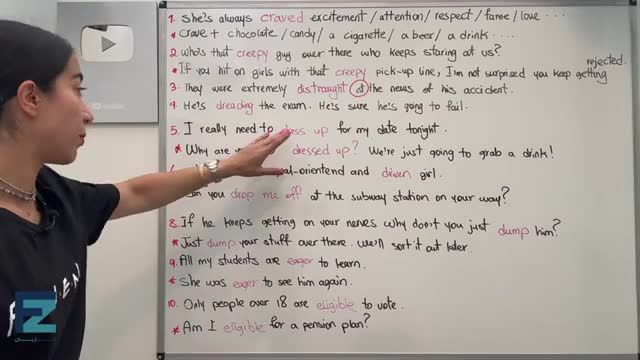 1. She's always craved excitement / attention / respect / fame / love ....
* crave + chocolate / candy / a cigarette / a beer / a drink ....
2. Who's that creepy guy over there who keeps staring at us?
* If you hit on girls with that creepy pick-up line, I'm not surprised you keep getting rejected.
3. They were extremely distraught at the news of his accident.
4. He's dreading the exam. He's sure he's going to fail.
5. I really need to dress up for my date tonight.
* Why are dressed up? We're just going to grab a drink!
-orientend and driven girl.
you drop me off at the subway station on your way?
8. If he keeps getting on your nerves why don't you just dump him?
* Just dump your stuff over there. We'll sort it out later.
9. All my students are eager to learn.
* She was eager to see him again.
10. Only people over 18 are eligible to vote.
* Am I eligible for a pension plan?